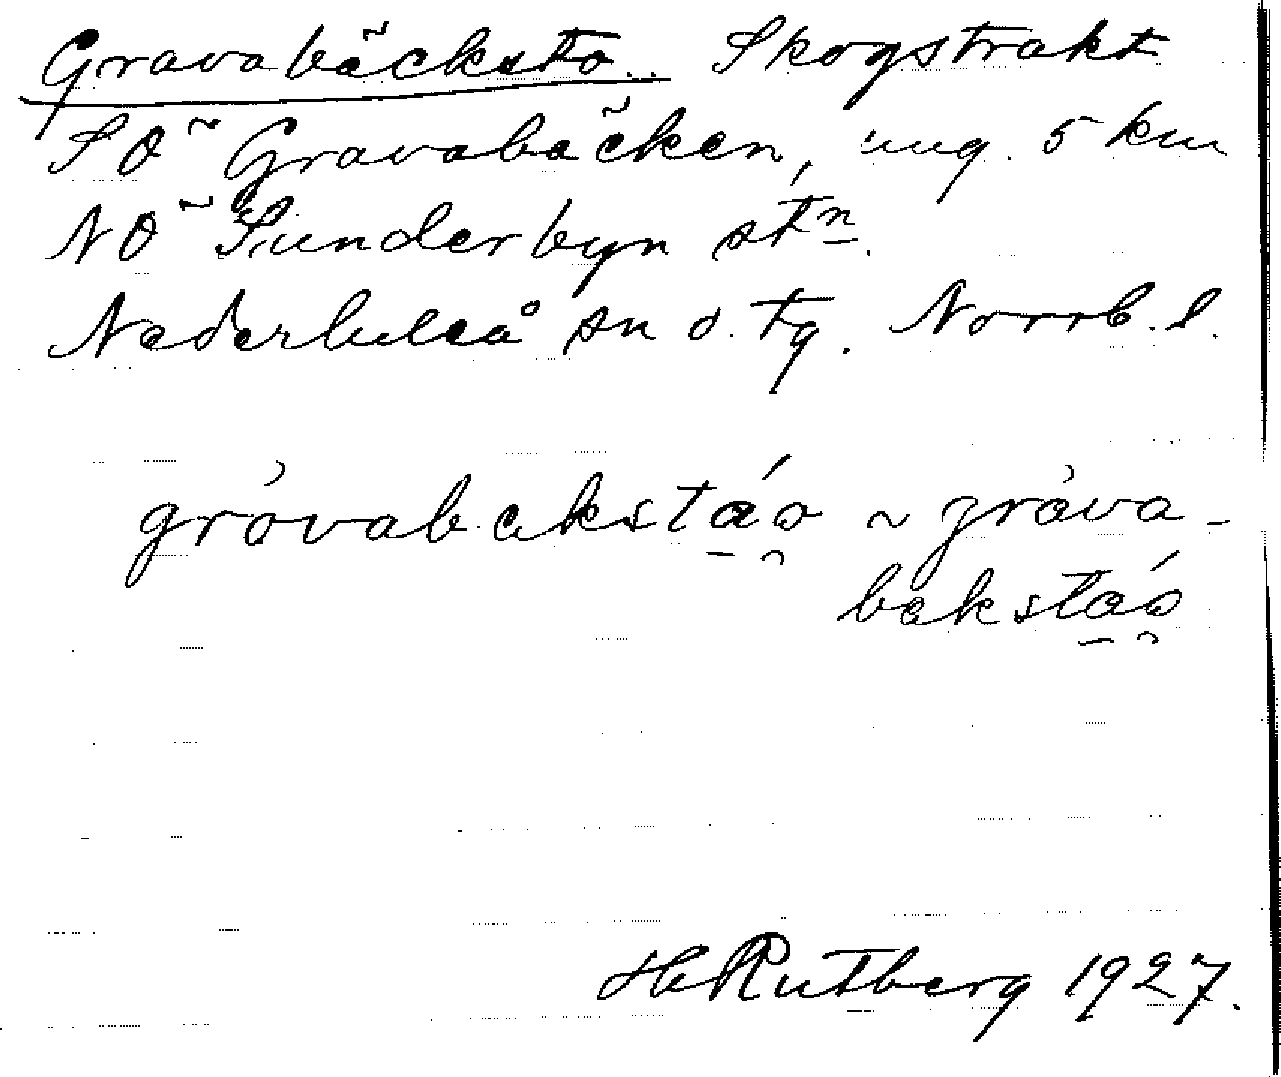 Gravabäckstö.. Skogstrakt
SÖ Gravabäcken, ung. 5 km
NÖ Sunderbyn stn.
Nederluleå sn o. tg. Norrb. l.
grávabakstáo ~ gráva-
bakstáo
H Rutberg 1927.